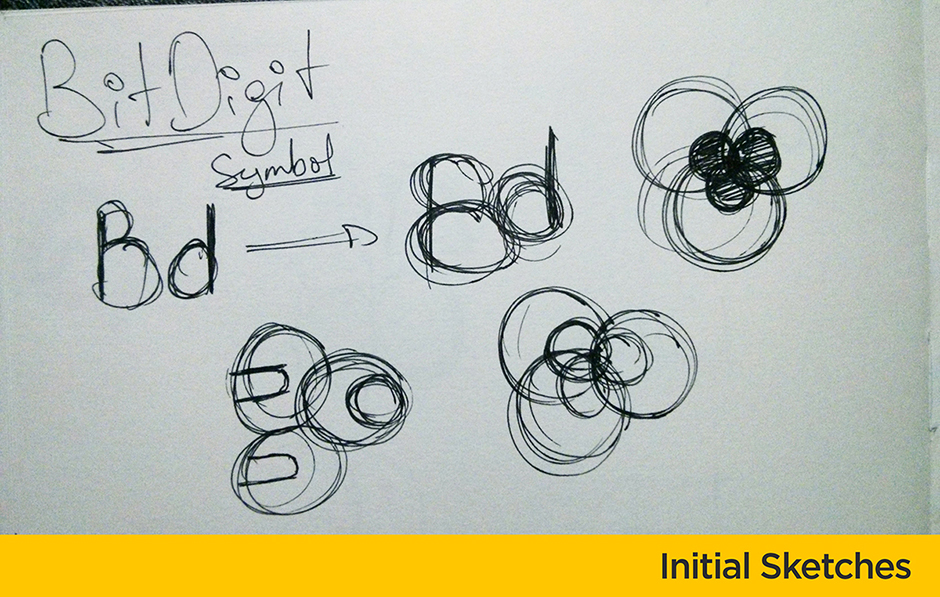 BitDigit
Symbol
Bd
Bd
Initial Sketches